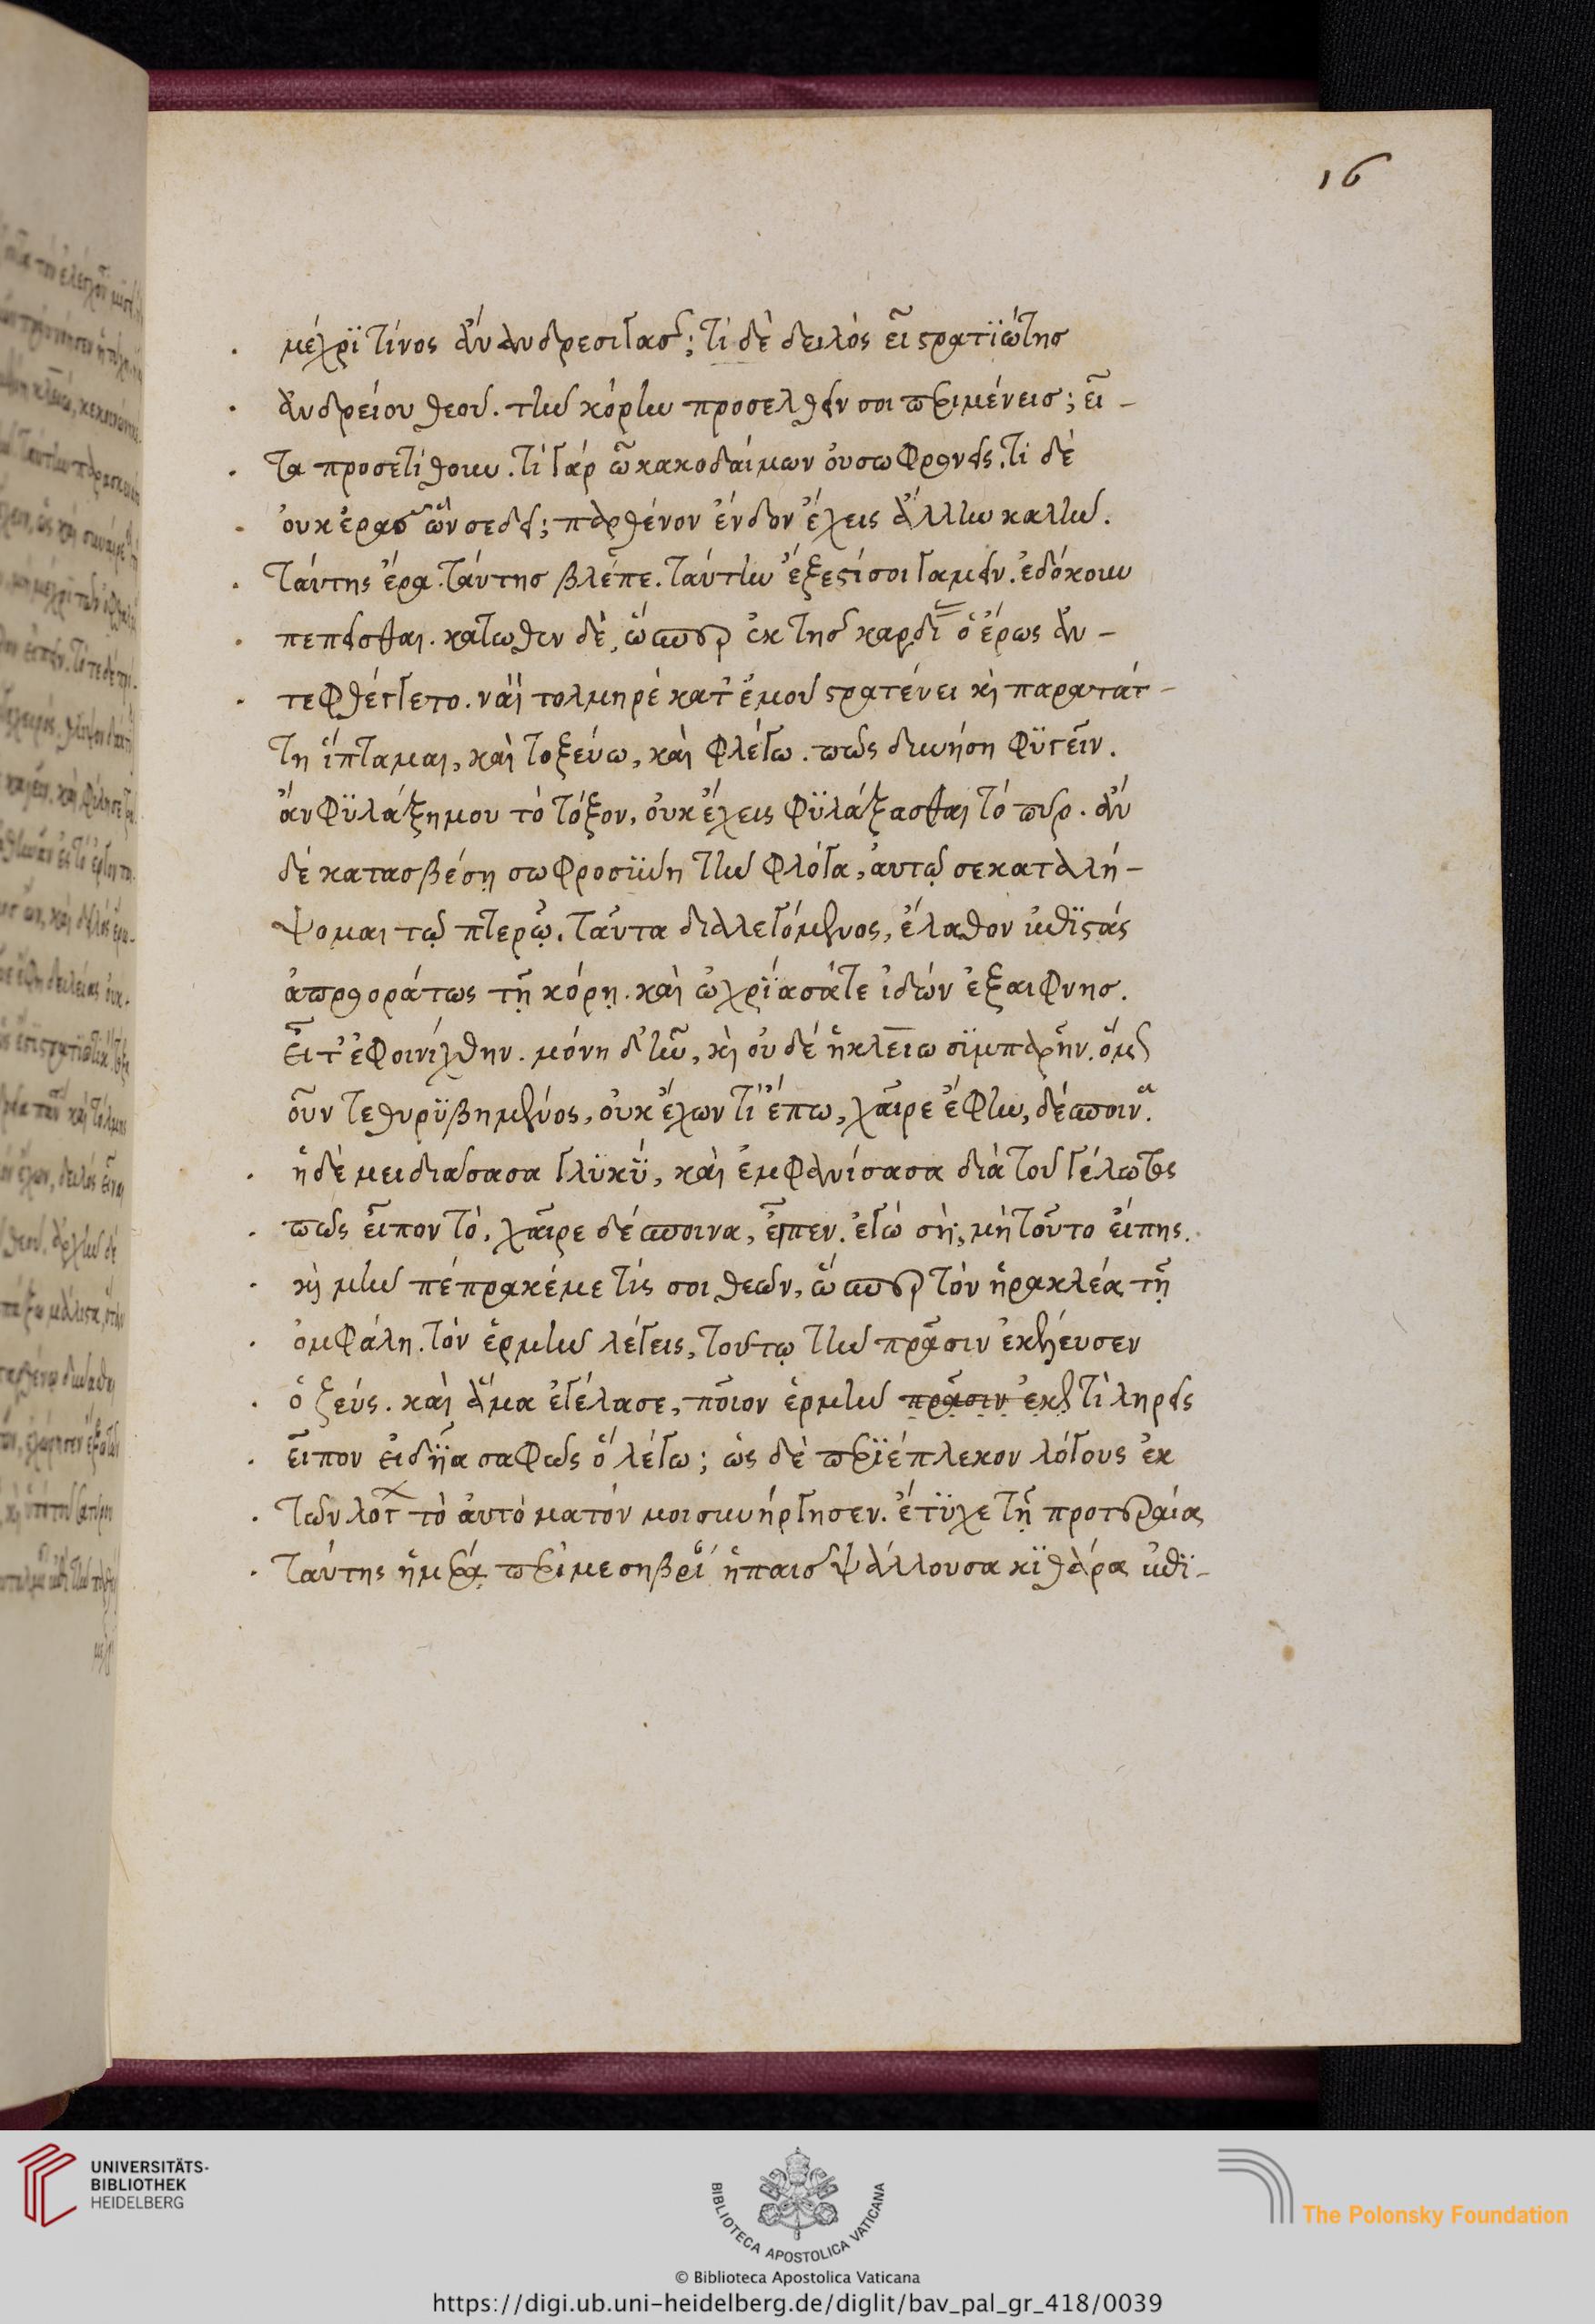 16
μέχρϊ τίνος ἄν ἀνδρεσιγασ; τί δὲ δειλός εἶ στρατϊώτησ
ἀνδρείου θεοῦ. τὴν κόρην προσελθεῖν σοι περιμένεισ; εἶ -
τα προσετίθουν. τί γάρ ὦ κακοδαίμων οὐ σωφρονεῖς. τί δὲ
οὐκ ἐρασ ὧν σε δεῖ; παρθένον ἔνδον ἔχεις ἄλλην καλὴν.
ταύτης ἔρα. ταύτησ βλέπε. ταύτην ἔξεστί σοι γαμεῖν. ἐδόκουν
πεπεῖσθαι. κάτωθεν δὲ, ὥσπερ ἐκ τησ καρδί ὁ ἔρως ἀν -
τεφθέγγετο. ναὶ τολμηρὲ κατ' ἐμοῦ στρατεύει κὶ παρατάτ -
τη ἵπταμαι, καὶ τοξεύω, καὶ φλέγω. πῶς δυνήση φϋγεῖν.
ἄν φϋλάξη μου τὸ τόξον, οὐκ ἔχεις φϋλάξασθαι τό πυρ. ἄν
δέ κατασβέσῃ σωφροσϋνη τὴν φλόγα, αὐτῷ σε καταλή -
ψομαι τῷ πτερῷ. ταῦτα διαλεγόμενος, ἔλαθον ἐπϊστάς
ἀπροοράτως τῇ κόρῃ. καὶ ὠχρϊασά τε ἰδών ἐξαιφνησ.
εἶτ' ἐφοινίχθην. μόνη δ' ἦν, κὶ οὐ δέ ἡ κλειω σϋμπαρῆν. ὅμς
οὖν τεθυρϋβημένος, οὐκ ἔχων τί ἔπω, χαῖρε ἔφην, δέσποινα.
ἡ δὲ μειδιασασα γλϋκϋ, καὶ ἐμφανίσασα διὰ τοῦ γέλωτος
πῶς εἶπον τὸ, χαῖρε δέσποινα, εἶπεν. ἐγώ σὴ; μὴ τοῦτο εἴπης.
κὶ μὴν πέπρακέ με τίς σοι θεῶν, ὥσπερ τόν ἡρακλέα τῇ
ὀμφάλη. τόν ἑρμὴν λέγεις, τούτῳ τὴν πρᾶσιν ἐκέλευσεν
ὁ ζεύς. καὶ ἅμα ἐγέλασε, ποῖον ἑρμὴν πρᾶσιν ἐκλ τί ληρεῖς
εἶπον εἰδῆα σαφῶς ὅ λέγω; ὡς δὲ περϊέπλεκον λόγους ἐκ
τῶν λογ τὸ αὐτόματόν μοι συνήργησεν. ἔτϋχε τῇ προτεραία
ταύτης ἡμέρα περι μεσηβρί ἡ παισ ψάλλουσα κϊθάρα ἐπϊ -
UNIVERSITÄTS-
BIBLIOTHEK
HEIDELBERG
BIBLIOTECA APOSTOLICA VATICANA
The Polonsky Foundation
© Biblioteca Apostolica Vaticana
https://digi.ub.uni-heidelberg.de/diglit/bav_pal_gr_418/0039